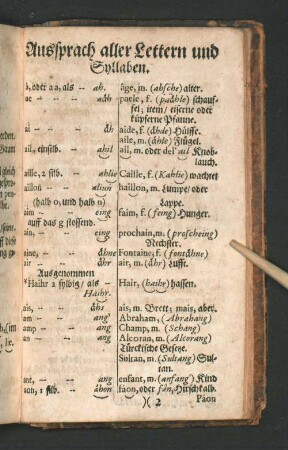 Aussprach aller Lettern und
Syllaben.
oder a a, als -- ah. äge, m. (absche) alter.
ae -- -- aäh paele, f. (paähle) schauf-
fel; item/ eiserne oder
küpferne Pfanne.
ai -- -- äh aide, f. (ähde) Hülffe.
aile, m. (ähle) Flügel.
ail, einsilb. -- ahil ail, m. oder del'ail Knob-
lauch.
aille, 2 silb. -- ahlie Caille, f. (Kahlie) wachtel
aillon -- haillon, m. Lumpe/ oder
(halb o, und halb u) Lappe.
aim -- -- eing faim, f. (feing) Hunger.
auff das g stossend.
ain, -- -- eing prochain, m. (proscheing)
Nechster.
aine, -- -- ähne Fontaine, f. (fontähne)
air -- -- ähr air, m. (ähr) Lufft.
Ausgenommen
Haïr 2 sylbig/ als Haïr, (hair) hassen.
Hahir.
ais, -- -- ähs ais, m. Brett; mais, aber.
am -- -- ang Abraham, (Abrahang)
amp -- -- ang Champ, m. (Schang)
an -- -- ang Alcoran, m. (Alcorang)
Türckische Gesetze.
Sultan, m. (Sultang) Sul-
tan.
ant, -- -- ang enfant, m. (anfang) Kind
aon, 1 silb. -- ähon faon, oder fan, Hirschkalb.
)( 2 Paon